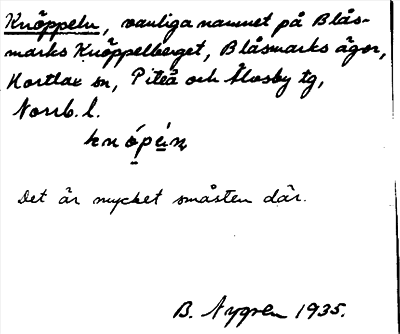 Knöppeln, vanliga namnet på Blås-
marks Knöppelberget, Blåsmarks ägor,
Hortlax sn, Piteå och Älvsby tg,
Norrb. l.
knópén
Det är mycket småsten där.
B. Nygren 1935.